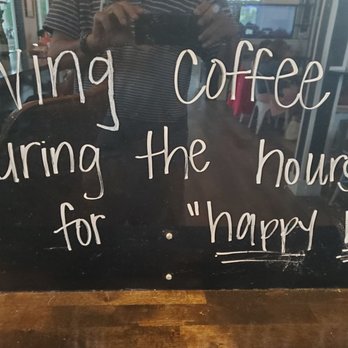 ving coffee
uring the hours
for "happy